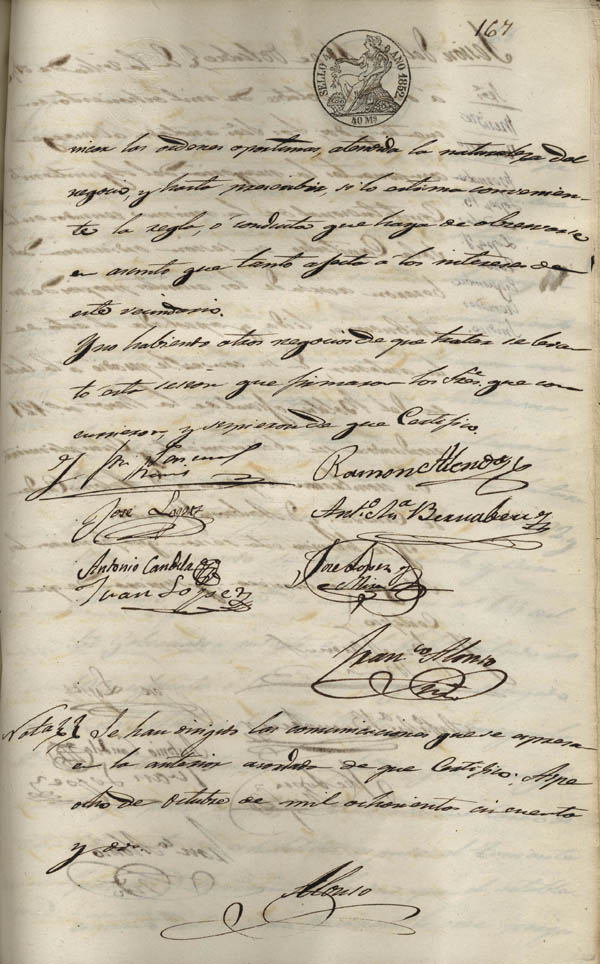 167
SELLO 4º AÑO 1852.
40 MS
nicar las ordenes oportunas, atendida la naturaleza del
negocio, y hasta prescribir, si lo estima convenien-
te la regla, ó conducta que haya de observarse
en asunto que tanto afecta á los intereses de
este vecindario.
Y no habiento otros negocios de que tratar se levan-
to esta sesion que firmaron los Sres. que con
currieron, y supieron de que Certifico.
Ramon Mendez
Jose Lopez
Antº Mª Bernabeu
Antonio Candela
Jose Lopez y
Mira
Juan Lopez
Franco Alonso
Srio
Nota Se han dirigido las comunicaciones que se espresa
en la anterior acordada de que Certifico. Aspe
ocho de Octubre de mil ochocientos cincuenta
y dos.
Alonso